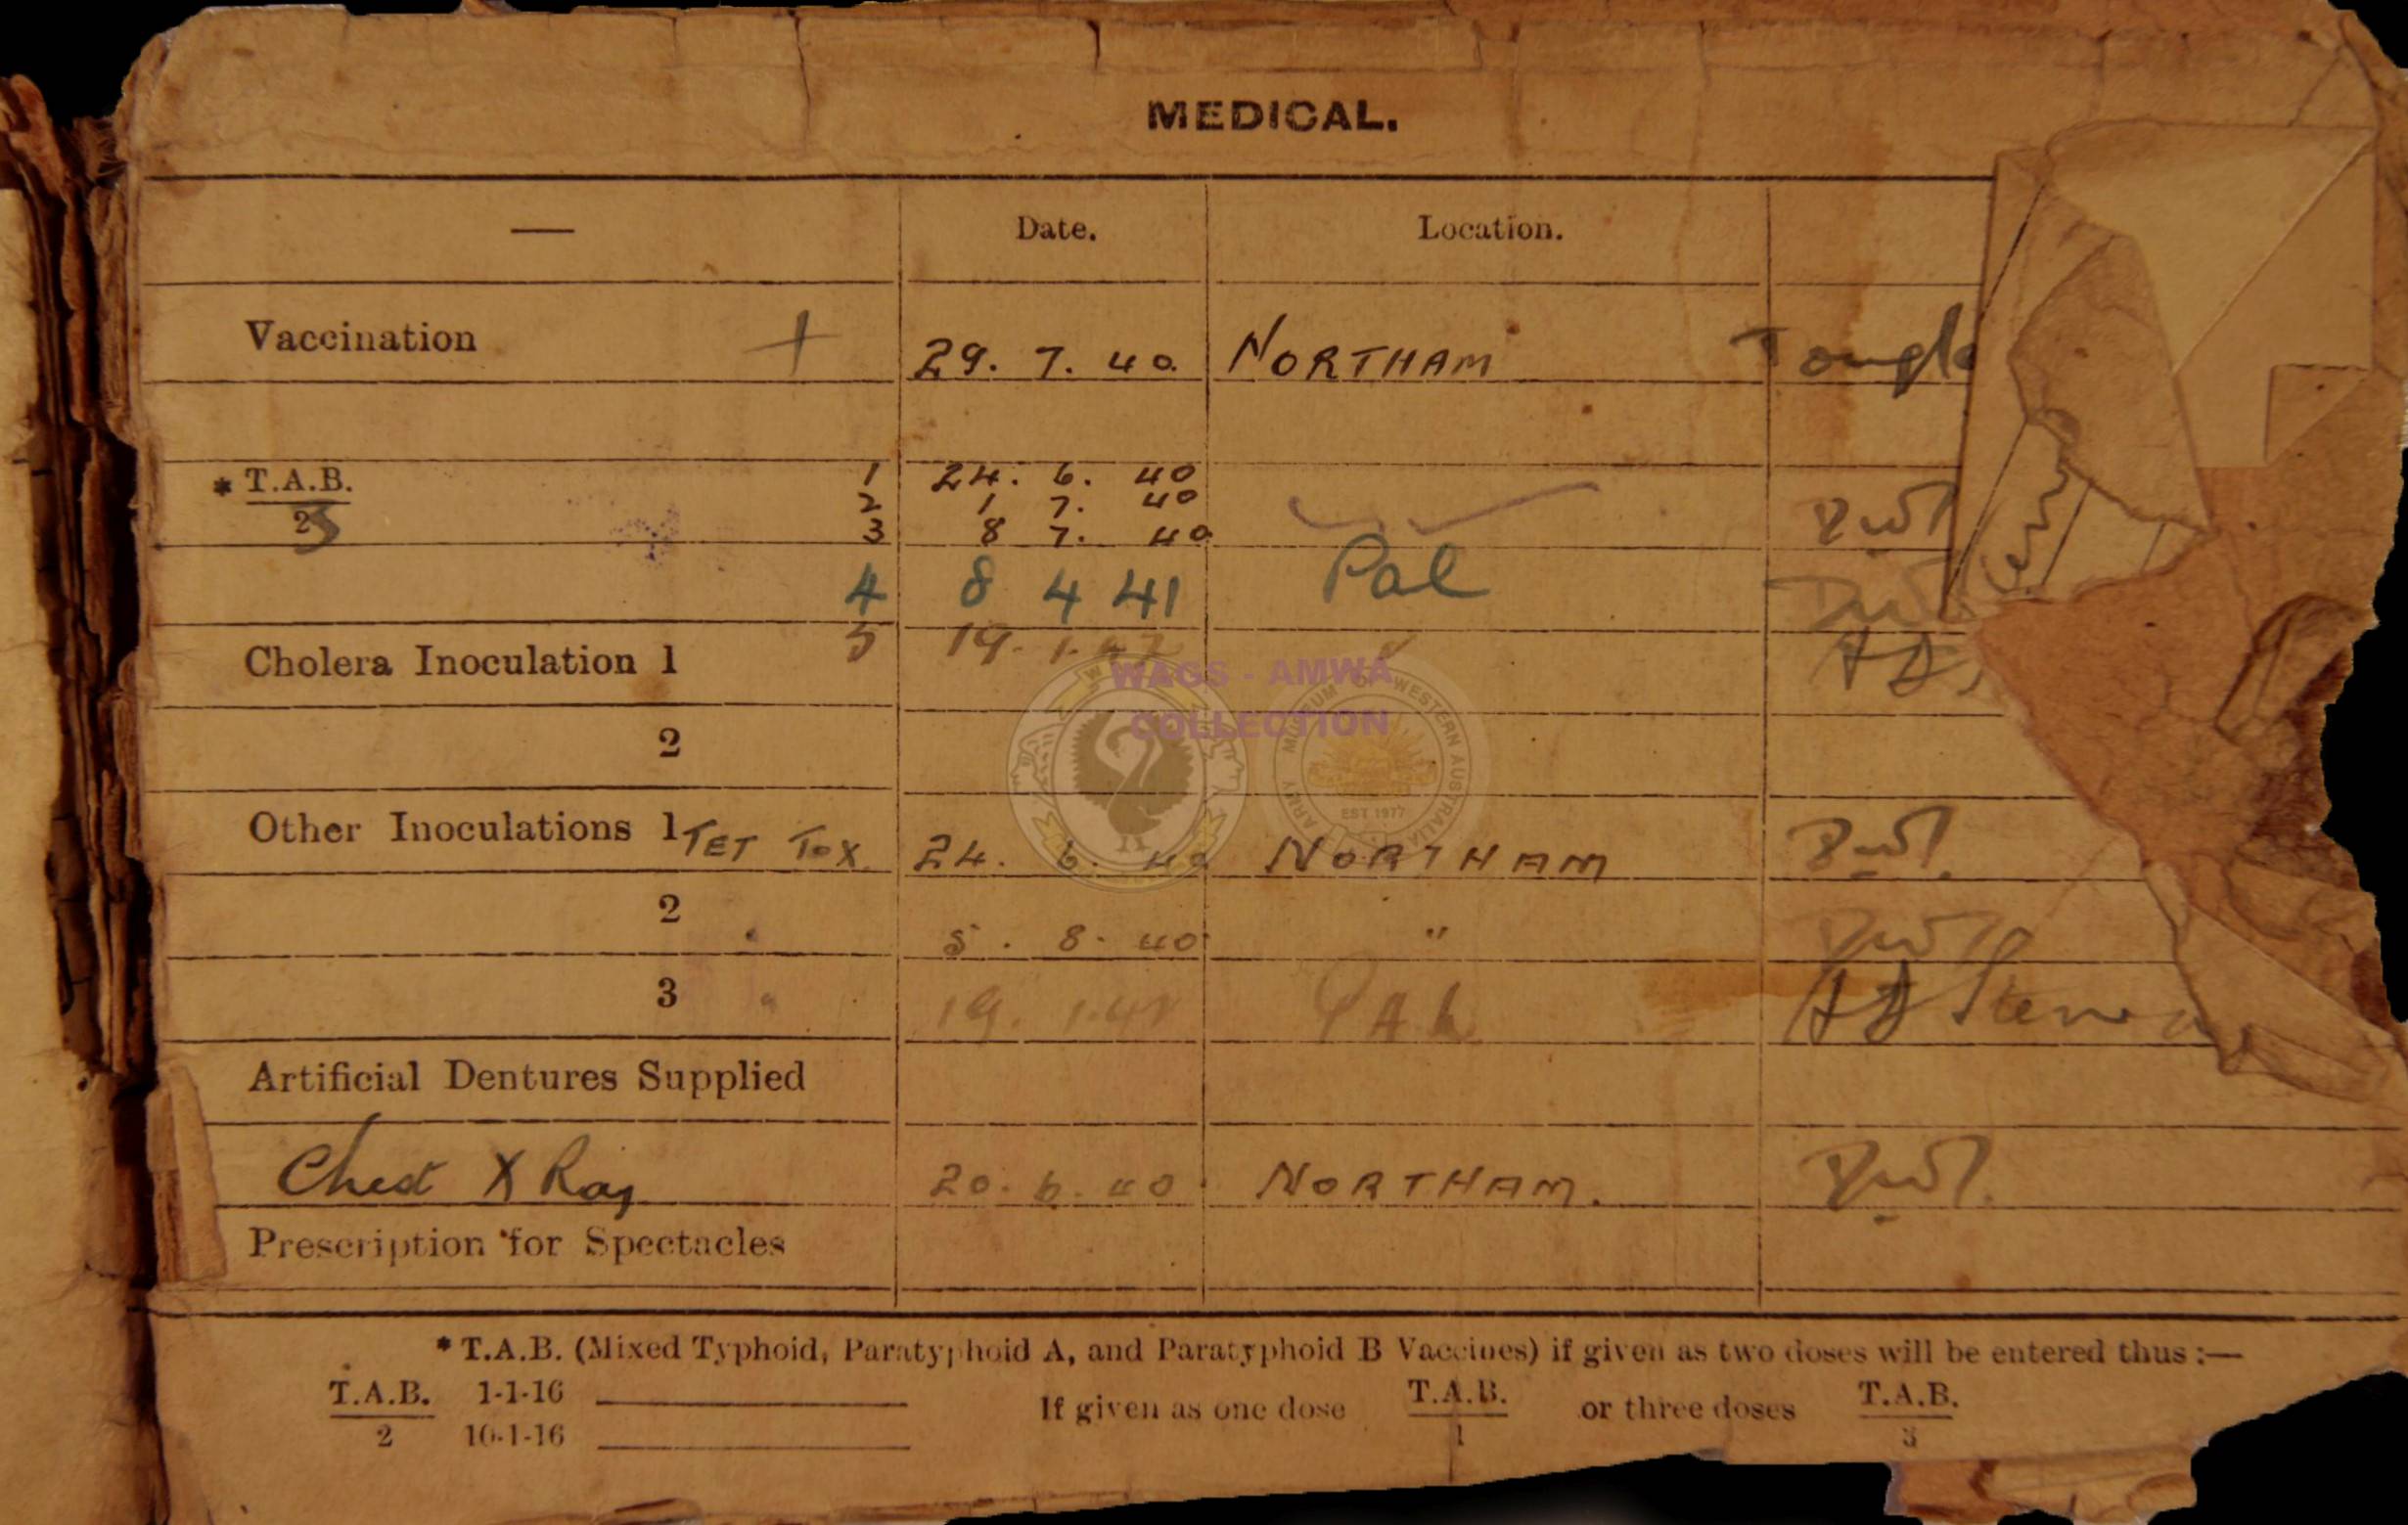 MEDICAL.
— Date. Location.
Vaccination + 29. 7. 40 NORTHAM
* T.A.B. 1 24. 6. 40
2 1 7. 40
23 3 8 7. 40
4 8 4 41 Pal
Cholera Inoculation 1 5 19. 1. 42
2
Other Inoculations 1 TET TOX. 24. 6. 40 NORTHAM
2 " 5. 8. 40 "
3 " 19. 1. 42 PAL
Artificial Dentures Supplied
Chest X Ray 20. 6. 40 NORTHAM.
Prescription for Spectacles
* T.A.B. (Mixed Typhoid, Paratyphoid A, and Paratyphoid B Vaccines) if given as two doses will be entered thus :—
T.A.B. 1-1-16 If given as one dose T.A.B. or three doses T.A.B.
2 10-1-16 1 3
WAGS - AMWA
COLLECTION
ARMY MUSEUM OF WESTERN AUSTRALIA
EST 1977